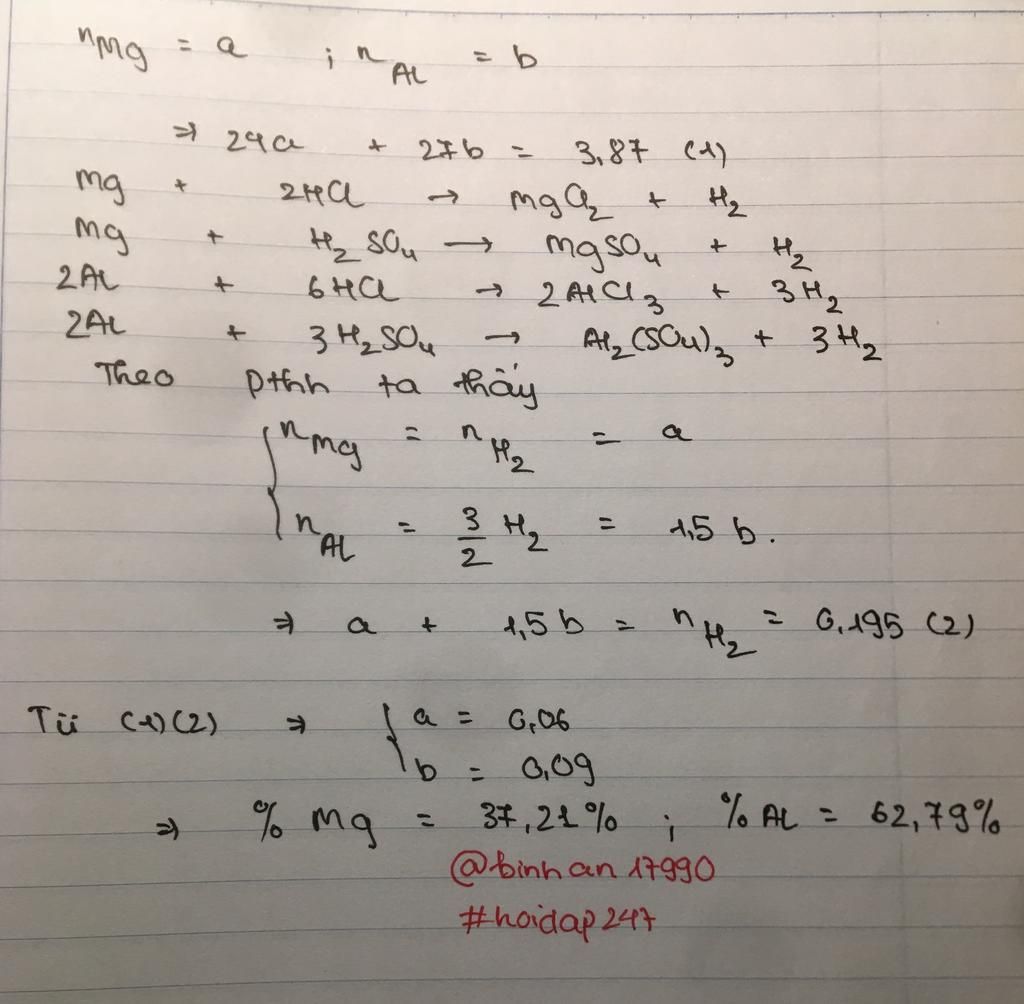 nMg = a ; nAl = b
⇒ 24a + 27b = 3,87 (1)
Mg + 2HCl → MgCl2 + H2
Mg + H2SO4 → MgSO4 + H2
2Al + 6HCl → 2AlCl3 + 3H2
2Al + 3H2SO4 → Al2(SO4)3 + 3H2
Theo pthh ta thấy
{ nMg = nH2 = a
nAl = 3/2 H2 = 1,5 b.
⇒ a + 1,5b = nH2 = 0,195 (2)
Từ (1)(2) ⇒ { a = 0,06
b = 0,09
⇒ % Mg = 37,21% ; % Al = 62,79%
@binhan17990
#hoidap247